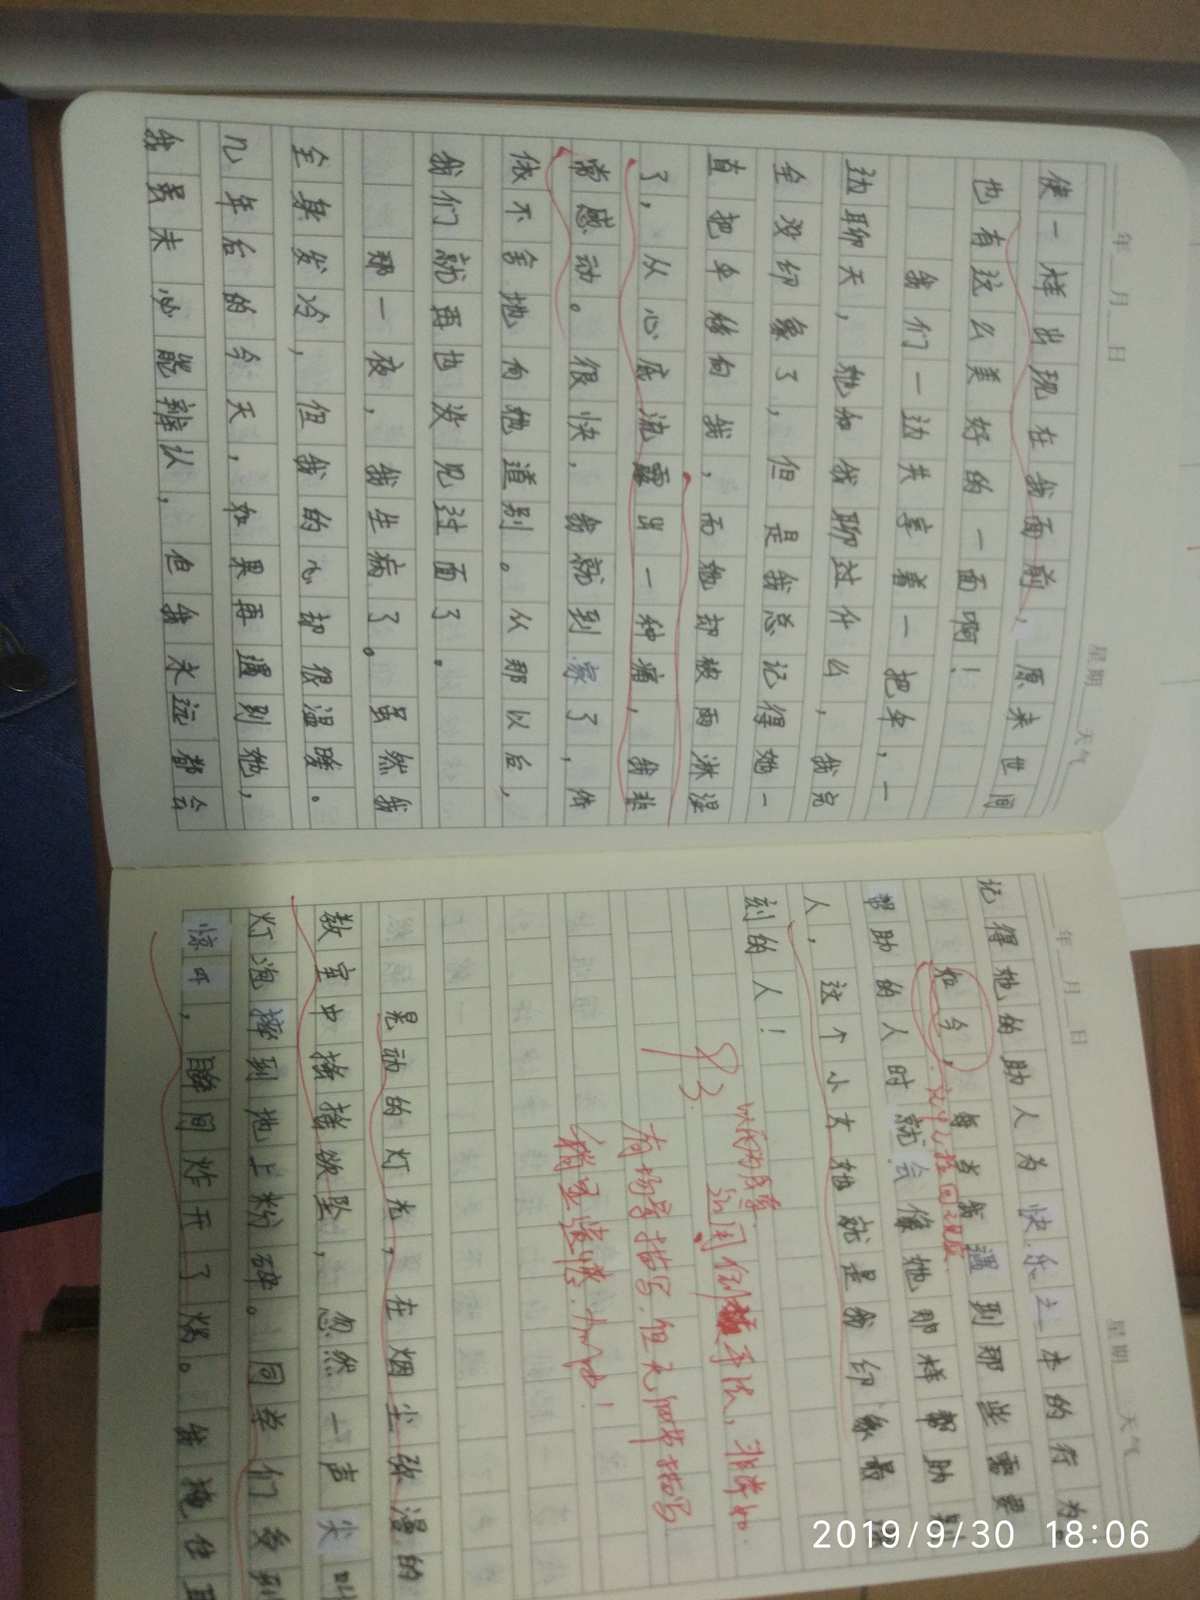 年 月 日 星期 天气
使一样出现在我面前,原来世间
也有这么美好的一面啊!
我们一边共享着一把伞,一
边聊天,她和我聊过什么,我完
全没印象了,但是我总记得她一
直把伞倾向我,而她却被雨淋湿
了,从心底流露出一种痛,我非
常感动。很快,我就到家了,依
依不舍地向她道别。从那以后,
我们就再也没见过面了。
那一夜,我生病了。虽然我
全身发冷,但我的心却很温暖。
几年后的今天,如果再遇到她,
我虽未必能辨认,但我永远都会
年 月 日 星期 天气
记得她的助人为快乐之本的行为。
如今,每当我遇到那些需要
帮助的人时就会像她那样帮助
人,这个小女孩就是我印象最
刻的人!
93
有场景描写,但无细节描写
稍显遗憾.加油!
晃动的灯光,在烟尘弥漫的
教室中摇摇欲坠,忽然一声尖叫
灯泡摔到地上粉碎。同学们受到
惊吓,瞬间炸开了锅。我捂住耳
2019/9/30 18:06